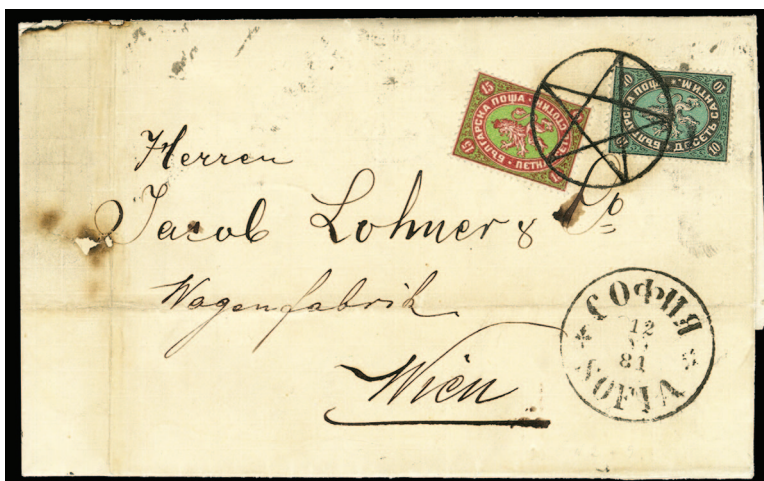 15 15
БЪЛГАРСКА ПОЩА
СТОТИНКИ
10 10
БЪЛГАРСКА ПОЩА
ДЕСЕТЬ САНТИМ.
Herren
Jacob Lohner & Co
Wagenfabrik
Wien
СОФИЯ
12
81
SOFIA